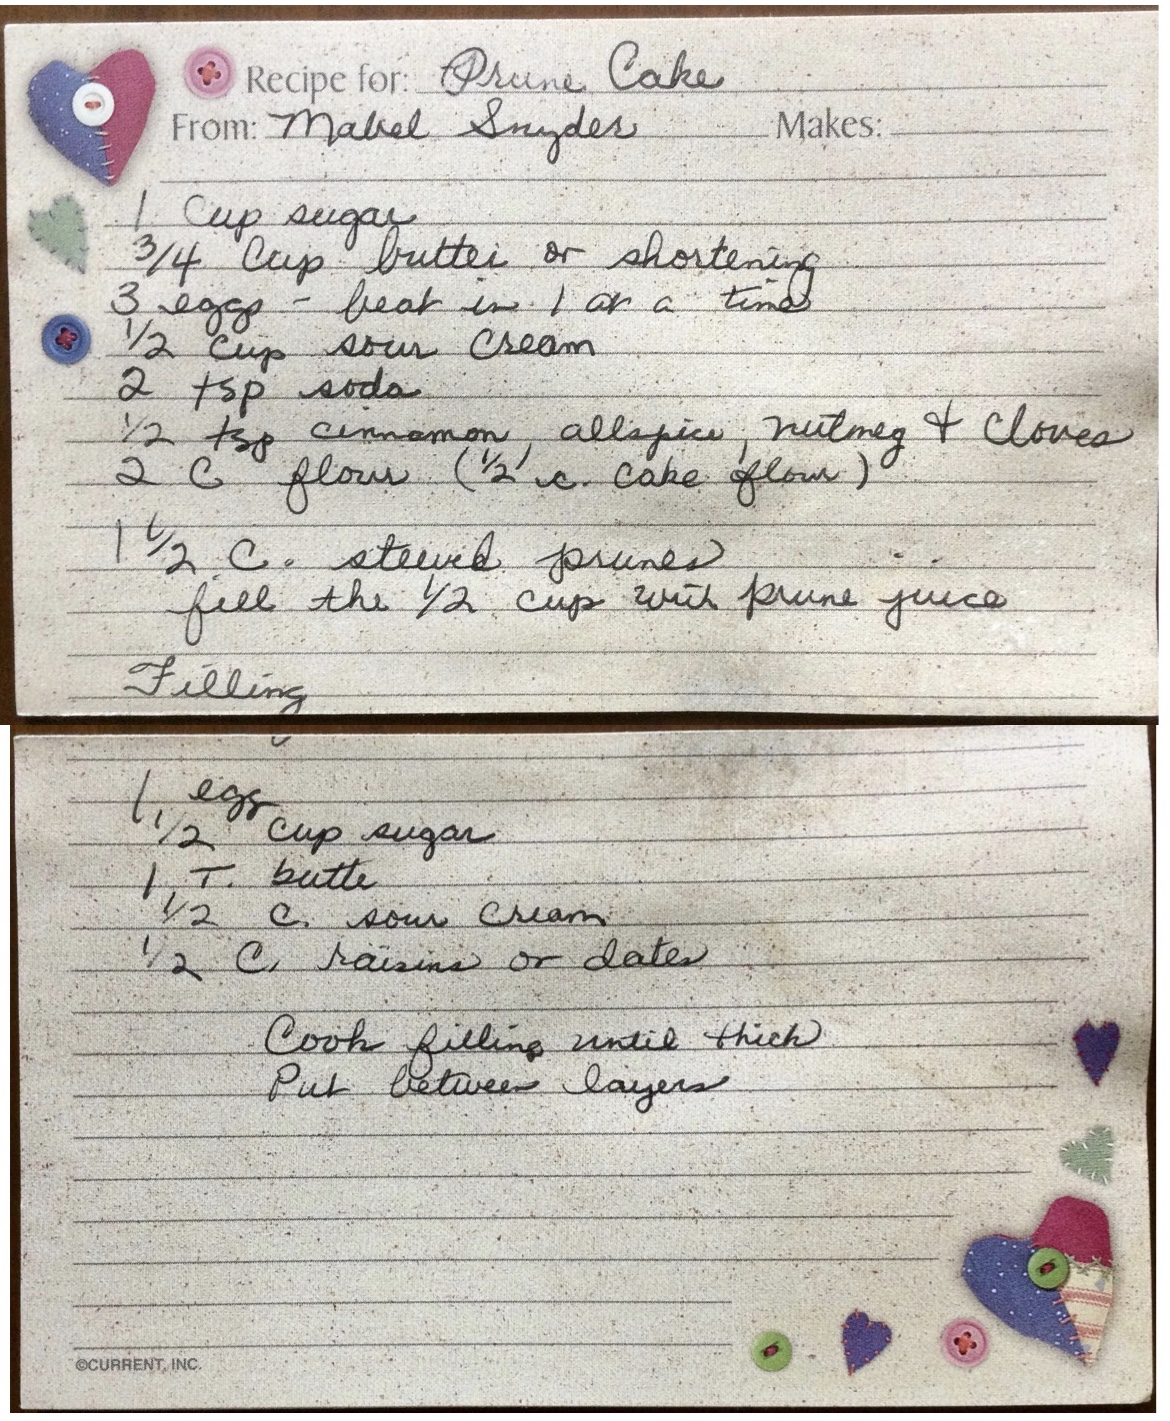 Recipe for: Prune Cake
From: Mabel Snyder Makes:
1 Cup sugar
3/4 Cup butter or shortening
3 eggs - beat in 1 at a time
1/2 cup sour cream
2 tsp soda
1/2 tsp cinnamon, allspice, nutmeg & Cloves
2 C flour (1/2 c. cake flour)
1 1/2 C. stewed prunes
fill the 1/2 cup with prune juice
Filling
1 egg
1/2 cup sugar
1 T. butte
1/2 c. sour cream
1/2 C. raisins or dates
Cook filling until thick
Put between layers
©CURRENT, INC.